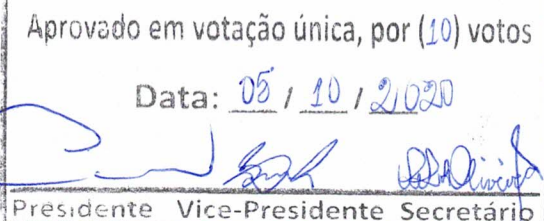 Aprovado em votação única, por (10) votos
Data: 05 / 10 / 2020
Presidente Vice-Presidente Secretário